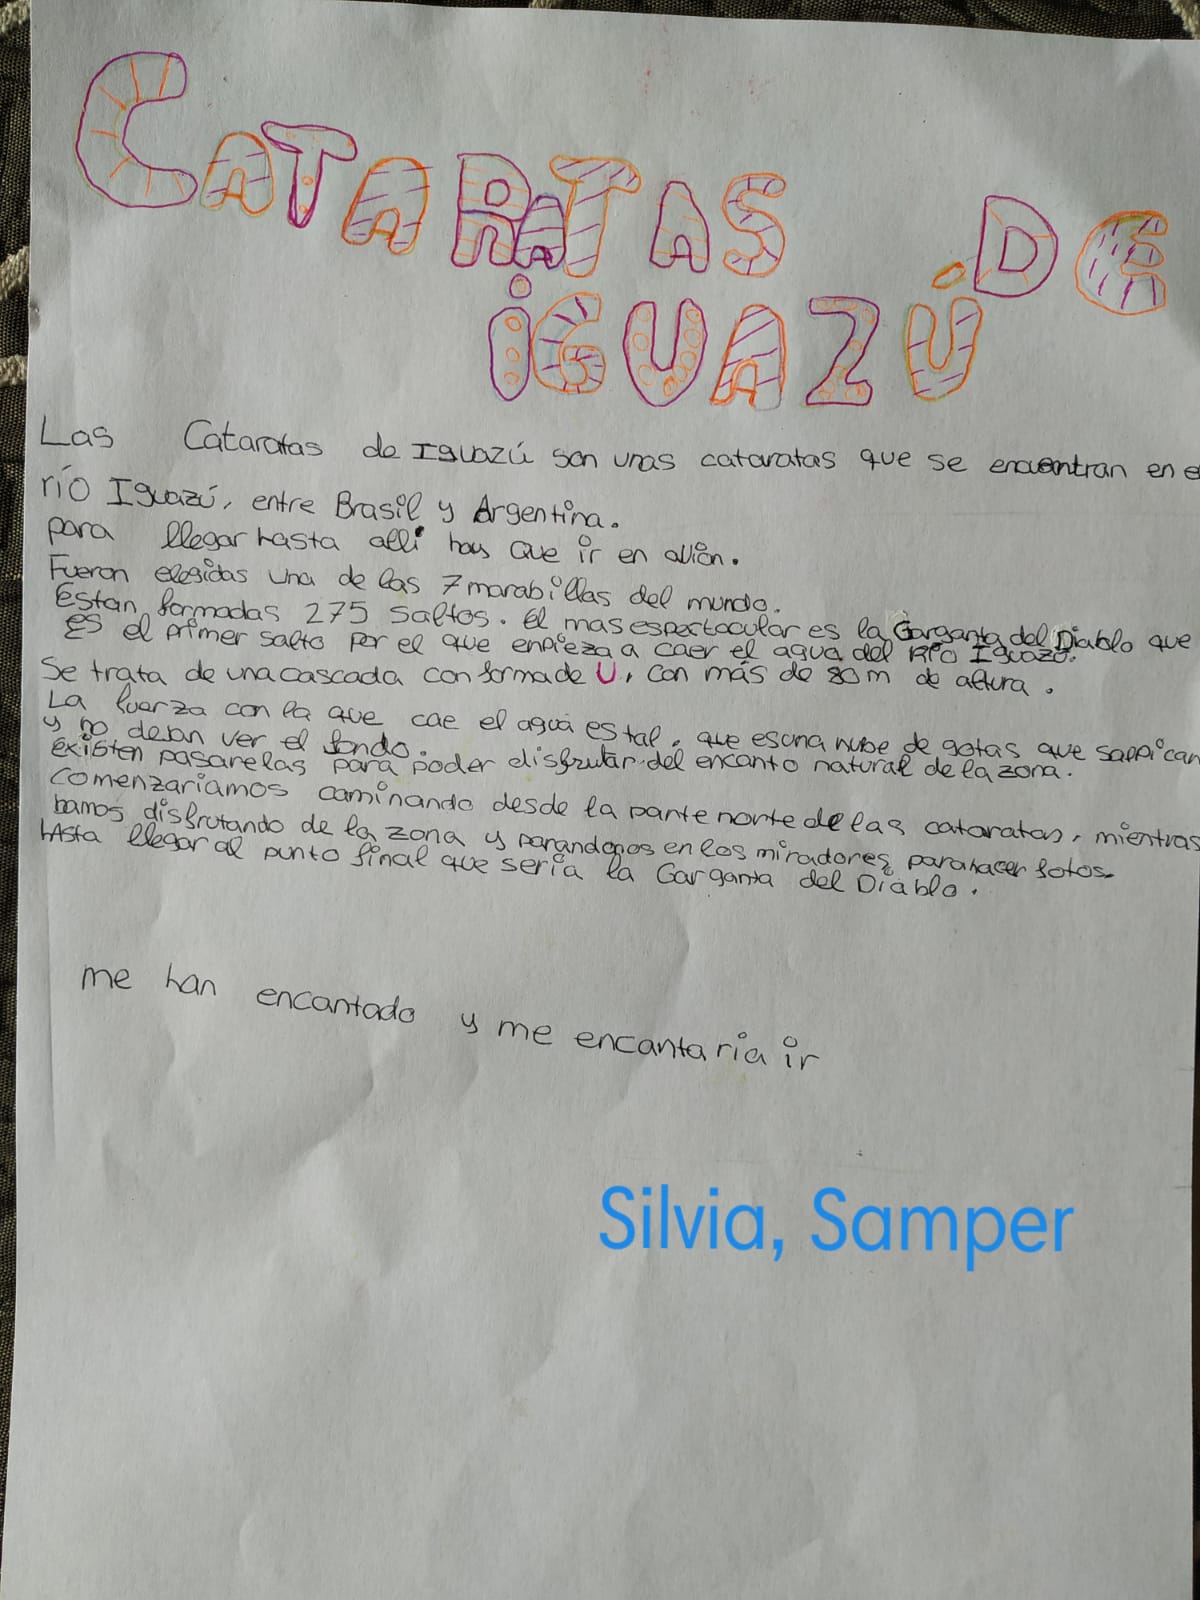 CATARATAS DE
IGUAZÚ
Las Cataratas de Iguazú son unas cataratas que se encuentran en el
río Iguazú, entre Brasil y Argentina.
para llegar hasta allí hay que ir en avión.
Fueron elegidas una de las 7 marabillas del mundo.
Están formadas 275 saltos. El mas espectacular es la Garganta del Diablo que
es el primer salto por el que enpieza a caer el agua del Río Iguazú.
Se trata de una cascada con forma de U, con más de 80 m de altura.
La fuerza con la que cae el agua es tal, que es una nube de gotas que salpican
y no dejan ver el fondo.
existen pasarelas para poder disfrutar del encanto natural de la zona.
Comenzaríamos caminando desde la parte norte de las cataratas, mientras
bamos disfrutando de la zona y parandonos en los miradores para hacer fotos.
hAsta llegar al punto final que sería la Garganta del Diablo.
me han encantado y me encantaría ir
Silvia, Samper